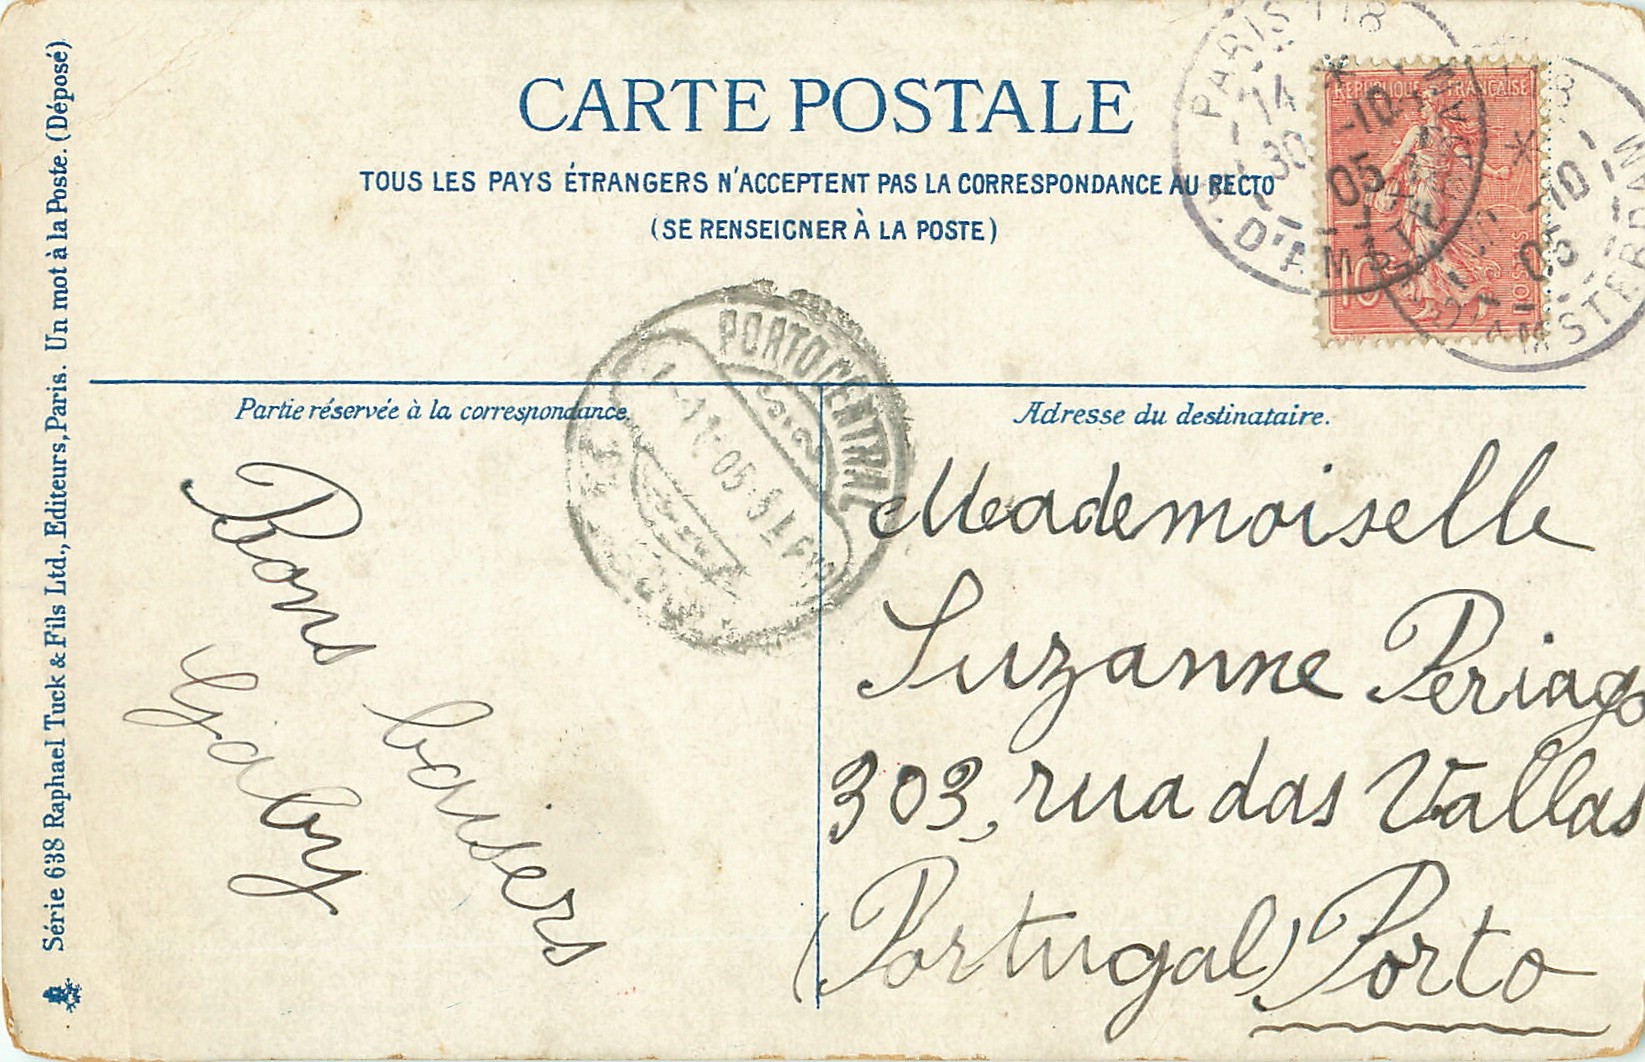 CARTE POSTALE
TOUS LES PAYS ÉTRANGERS N'ACCEPTENT PAS LA CORRESPONDANCE AU RECTO
(SE RENSEIGNER À LA POSTE)
PARIS 118
14
30
-10
05
D'AMSTERDAM
REPUBLIQUE FRANÇAISE
10
POSTES
-10
05
D'AMSTERDAM
PORTO CENTRAL
1-11-05
Partie réservée à la correspondance.
Bons baisers
Gaby
Adresse du destinataire.
Mademoiselle
Suzanne Periago
303, rua das Vallas
(Portugal) Porto
Série 638 Raphael Tuck & Fils Ltd., Editeurs, Paris. Un mot à la Poste. (Déposé)